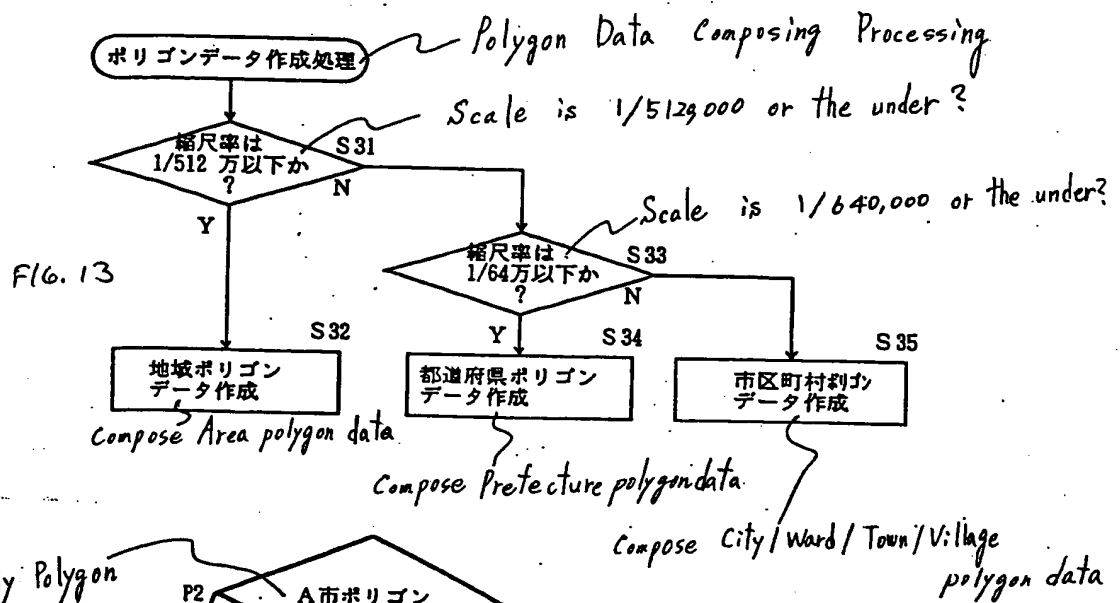 ポリゴンデータ作成処理
Polygon Data Composing Processing
Scale is 1/5129,000 or the under?
縮尺率は
1/512 万以下か
?
S31
N
Y
Scale is 1/640,000 or the under?
縮尺率は
1/64万以下か
?
S33
N
Y
FIG. 13
S32
地域ポリゴン
データ作成
S34
都道府県ポリゴン
データ作成
S35
市区町村ポリゴン
データ作成
Compose Area polygon data
Compose Prefecture polygon data
Compose City/Ward/Town/Village
polygon data
y Polygon
P2
A市ポリゴン